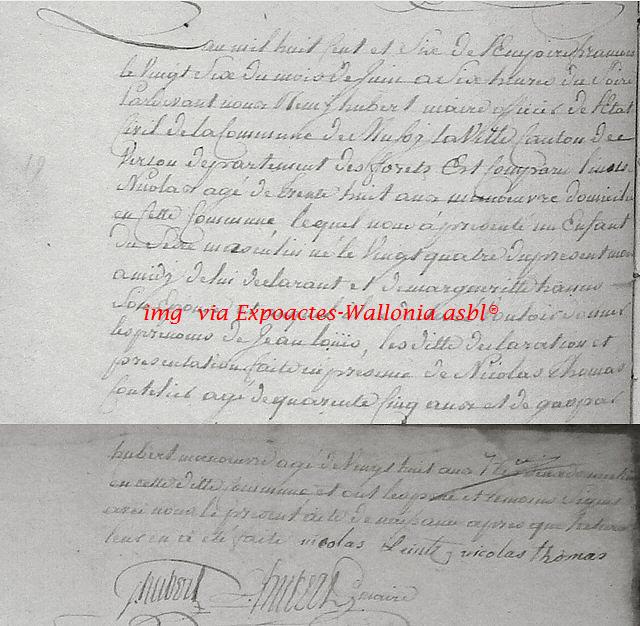 L'an mil huit cent et Six de l'Empire francais
le vingt Six du mois de Juin a Six heures du Soire
Pardevant nous Henry hubert maire officier de l'Etat
Civil de la Commune de la Ville Canton de
Virton departement des forets Est Comparu
Nicolas agé de trente huit ans manoeuvre domicilié
en cette Commune, lequel nous à presenté un Enfant
du Sexe masculin né le Vingt quatre du present mois
a midy de lui declarant et de margueritte
Son Epouse
img via Expoactes-Wallonia asbl®
les prenoms de Jean louis, les ditte declaration et
presentation faite en presence de Nicolas thomas
agé de quarente Cinq ans et de gaspar
hubert manoeuvre agé de Vingt huit ans
en cette ditte Commune et ont les pere et temoins signés
avec nous le present acte de naissance apres que lecture
leur en à eté faite nicolas nicolas thomas
ghubert hubert maire
19